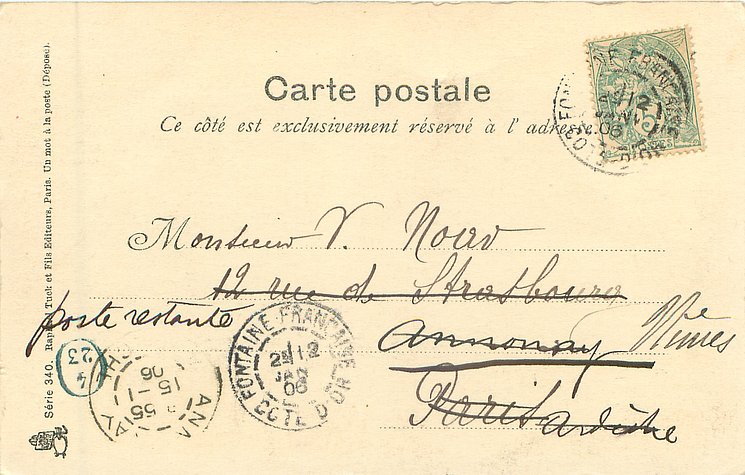 Carte postale
Ce côté est exclusivement réservé à l'adresse
FONTAINE FRANÇAISE
12
JANV
06
CÔTE D'OR
Monsieur V.
12 rue de Strasbourg
poste restante
Annonay Nimes
Paris Ardèche
FONTAINE FRANÇAISE
12
JANV
06
CÔTE D'OR
4
23
15-1
06
Série 340. Raphaël Tuck et Fils Editeurs, Paris. Un mot à la poste (Déposé).